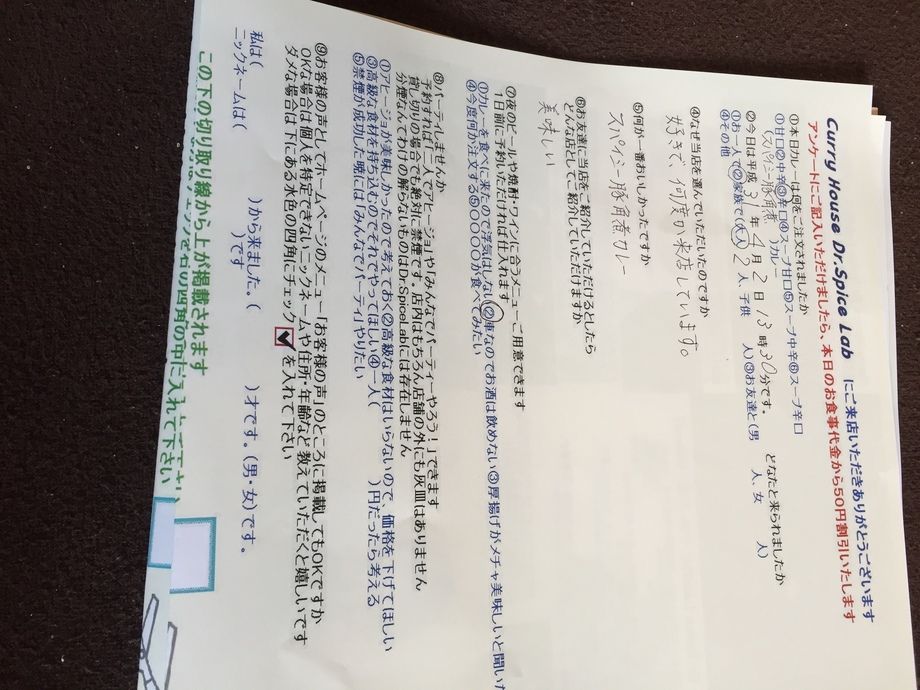 Curry House Dr.Spice Lab にご来店いただきありがとうございます
アンケートにご記入いただけましたら、本日のお食事代金から50円割引いたします
①本日カレーは何をご注文されましたか
①甘口②中辛③辛口④スープ甘口⑤スープ中辛⑥スープ辛口
(スパイシー豚角煮カレー
②今日は平成 31年 4月 2日 13時 30分です。 どなたと来られましたか
①お一人で②家族で(大人 2人、子供 人)③お友達と(男 人、女 人)
④その他
④なぜ当店を選んでいただいたのですか
好きで、何度か来店しています。
⑤何が一番おいしかったですか
スパイシー豚角煮カレー
⑥お友達に当店をご紹介していただけるとしたら
どんな店としてご紹介していただけますか
美味しい
⑦夜のビールや焼酎・ワインに合うメニューご用意できます
1日前に予約いただければ仕入れます
①カレーを食べに来たので浮気はしない②車なのでお酒は飲めない③厚揚げがメチャ美味しいと聞いた
④今度何か注文する⑤〇〇〇〇が食べてみたい
⑧パーティしませんか
予約すれば「二人でアヒージョ」や「みんなでパーティーやろう!」できます
貸し切りの場合でも絶対に禁煙です。店内はもちろん店舗の外にも灰皿はありません
分煙なんてわけの解らないものはDr.SpiceLabには存在しません
①アヒージョが美味しかったので考えておく②高級な食材はいらないので、価格を下げてほしい
③高級な食材を持ち込むのでそれでやってほしい④一人( )円だったら考える
⑤禁煙が成功した暁には「みんなでパーティ」やりたい
⑨お客様の声としてホームページのメニュー「お客様の声」のところに掲載してもOKですか
OKな場合は個人を特定できないニックネームや住所・年齢など教えていただくと嬉しいです
ダメな場合は下にある水色の四角にチェック✔を入れて下さい
私は( )から来ました。( )才です。(男・女)です。
ニックネームは( )です
この下の切り取り線から上が掲載されます